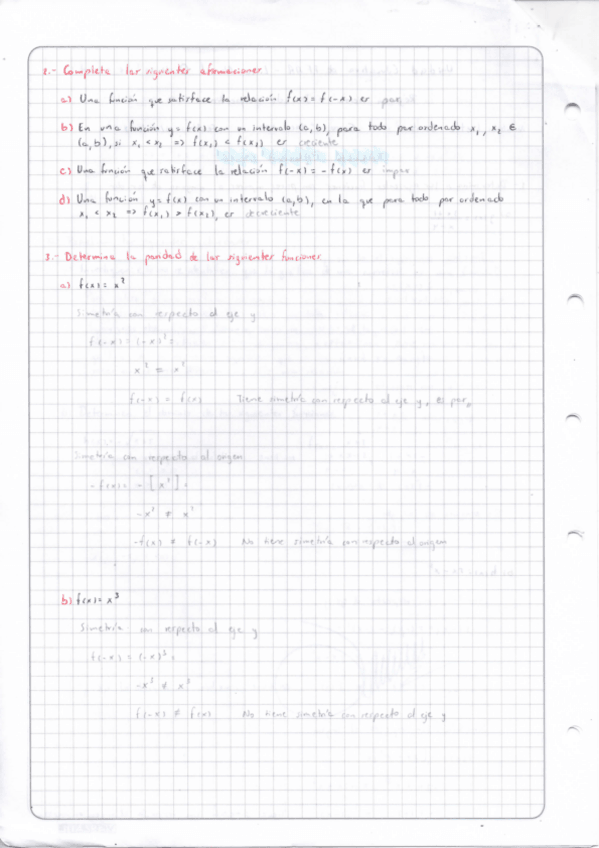 2.- Completa las siguientes afirmaciones
a) Una función que satisface la relación f(x) = f(-x) es par
b) En una función y = f(x) con un intervalo (a,b), para todo par ordenado x₁, x₂ ∈
(a,b), si x₁ < x₂ => f(x₁) < f(x₂) es creciente
c) Una función que satisface la relación f(-x) = -f(x) es impar
d) Una función y = f(x) con un intervalo (a,b), en la que para todo par ordenado
x₁ < x₂ => f(x₁) > f(x₂), es decreciente
3.- Determina la paridad de las siguientes funciones
a) f(x) = x²
Simetría con respecto al eje y
f(-x) = (-x)² =
x² = x²
f(-x) = f(x) Tiene simetría con respecto al eje y, es par
Simetría con respecto al origen
-f(x) = - [x²] =
-x² ≠ x²
-f(x) ≠ f(-x) No tiene simetría con respecto al origen
b) f(x) = x³
Simetría con respecto al eje y
f(-x) = (-x)³ =
-x³ ≠ x³
f(-x) ≠ f(x) No tiene simetría con respecto al eje y